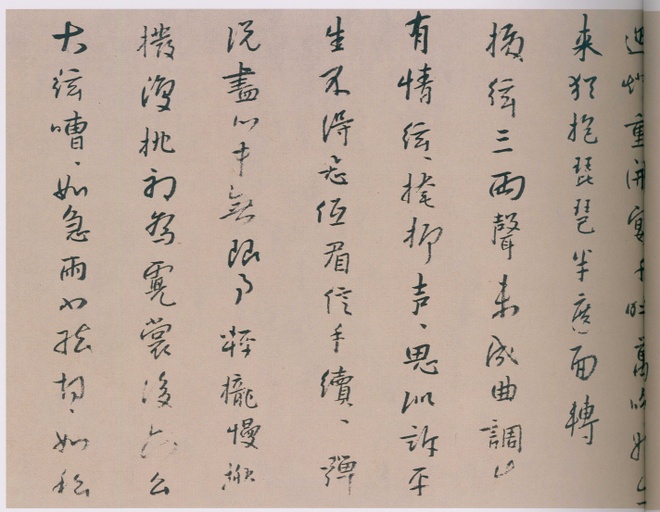 迴灯重開宴千呼萬喚始出
来猶抱琵琶半遮面轉
絃三兩聲未成曲調先
有情絃、掩抑声、思似訴平
生不得志低眉信手續、彈
说盡心中無限事輕攏慢撚
撥復挑初為霓裳後六么
大弦嘈、如急雨小弦切、如私